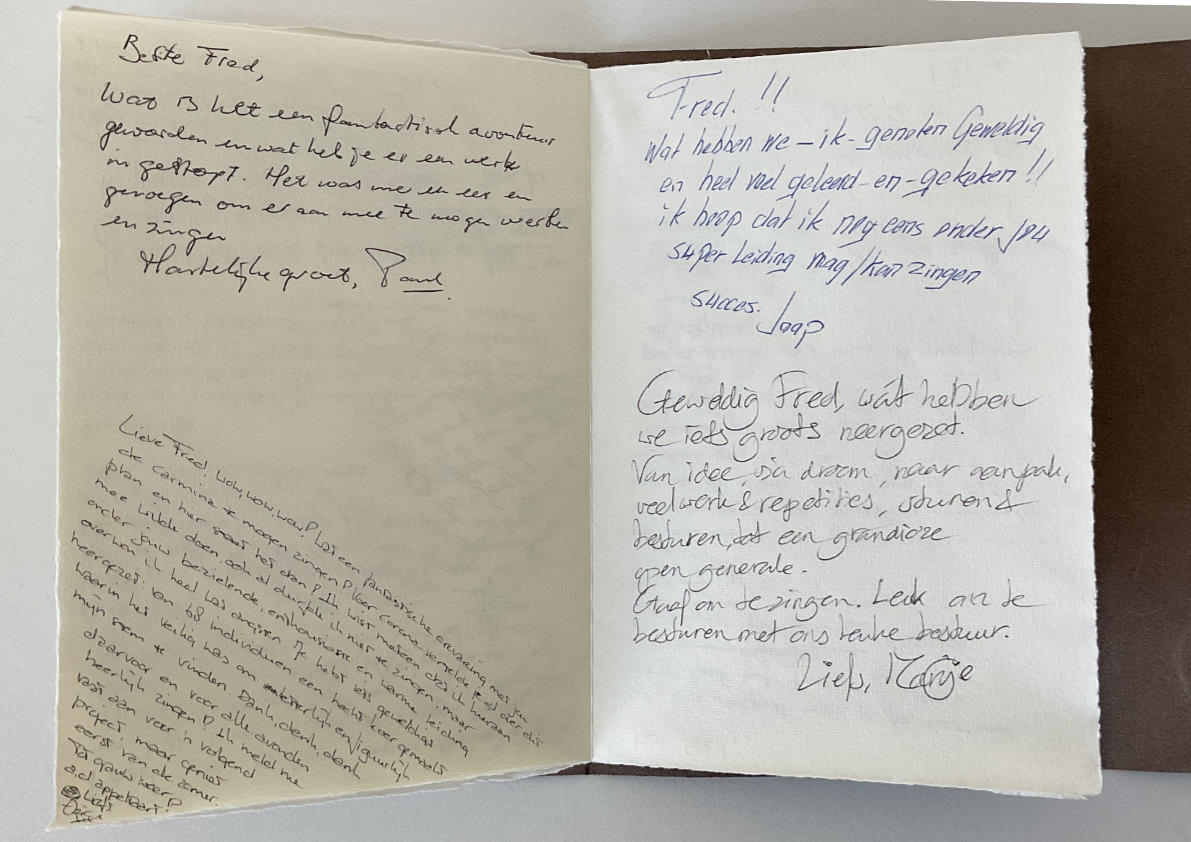 Beste Fred,
Wat is het een fantastisch avontuur
geworden en wat heb je er een werk
in gestopt. Het was me een eer en
genoegen om er aan mee te mogen werken
en zingen
Hartelijke groet, Paul.
Lieve Fred, wow, wow, wow! Wat een fantastische ervaring met jou
de Carmina te mogen zingen! Voor corona vertelde je al over dit
plan en hier staat het dan! Ik wist meteen dat ik hieraan
mee wilde doen, ook al durfde ik niet te zingen, maar
onder jouw bezielende, enthousiaste en warme leiding
overwon ik heel wat angsten. Je hebt iets geweldigs
neergezet: van 68 individuen een hecht koor gemaakt
waarin het veilig was om letterlijk en figuurlijk
mijn stem te vinden. Dank, dank, dank
daarvoor en voor alle avonden
heerlijk zingen! Ik meld me
vast aan voor 'n volgend
project, maar geniet
eerst van de zomer.
Tot gauw weer!
a.d. appeltaart!
Liefs
Fred. !!
Wat hebben we – ik - genoten Geweldig
en heel veel geleerd - en - gekeken !!
ik hoop dat ik nog eens onder jou
super leiding mag/kan zingen
succes. Jaap
Geweldig Fred, wát hebben
we iets groots neergezet.
Van idee, via droom, naar aanpak,
veel werk & repetities, sturen &
besturen, tot een grandioze
open generale.
Gaaf om te zingen. Leuk om te
besturen met ons leuke bestuur.
Liefs, Marije